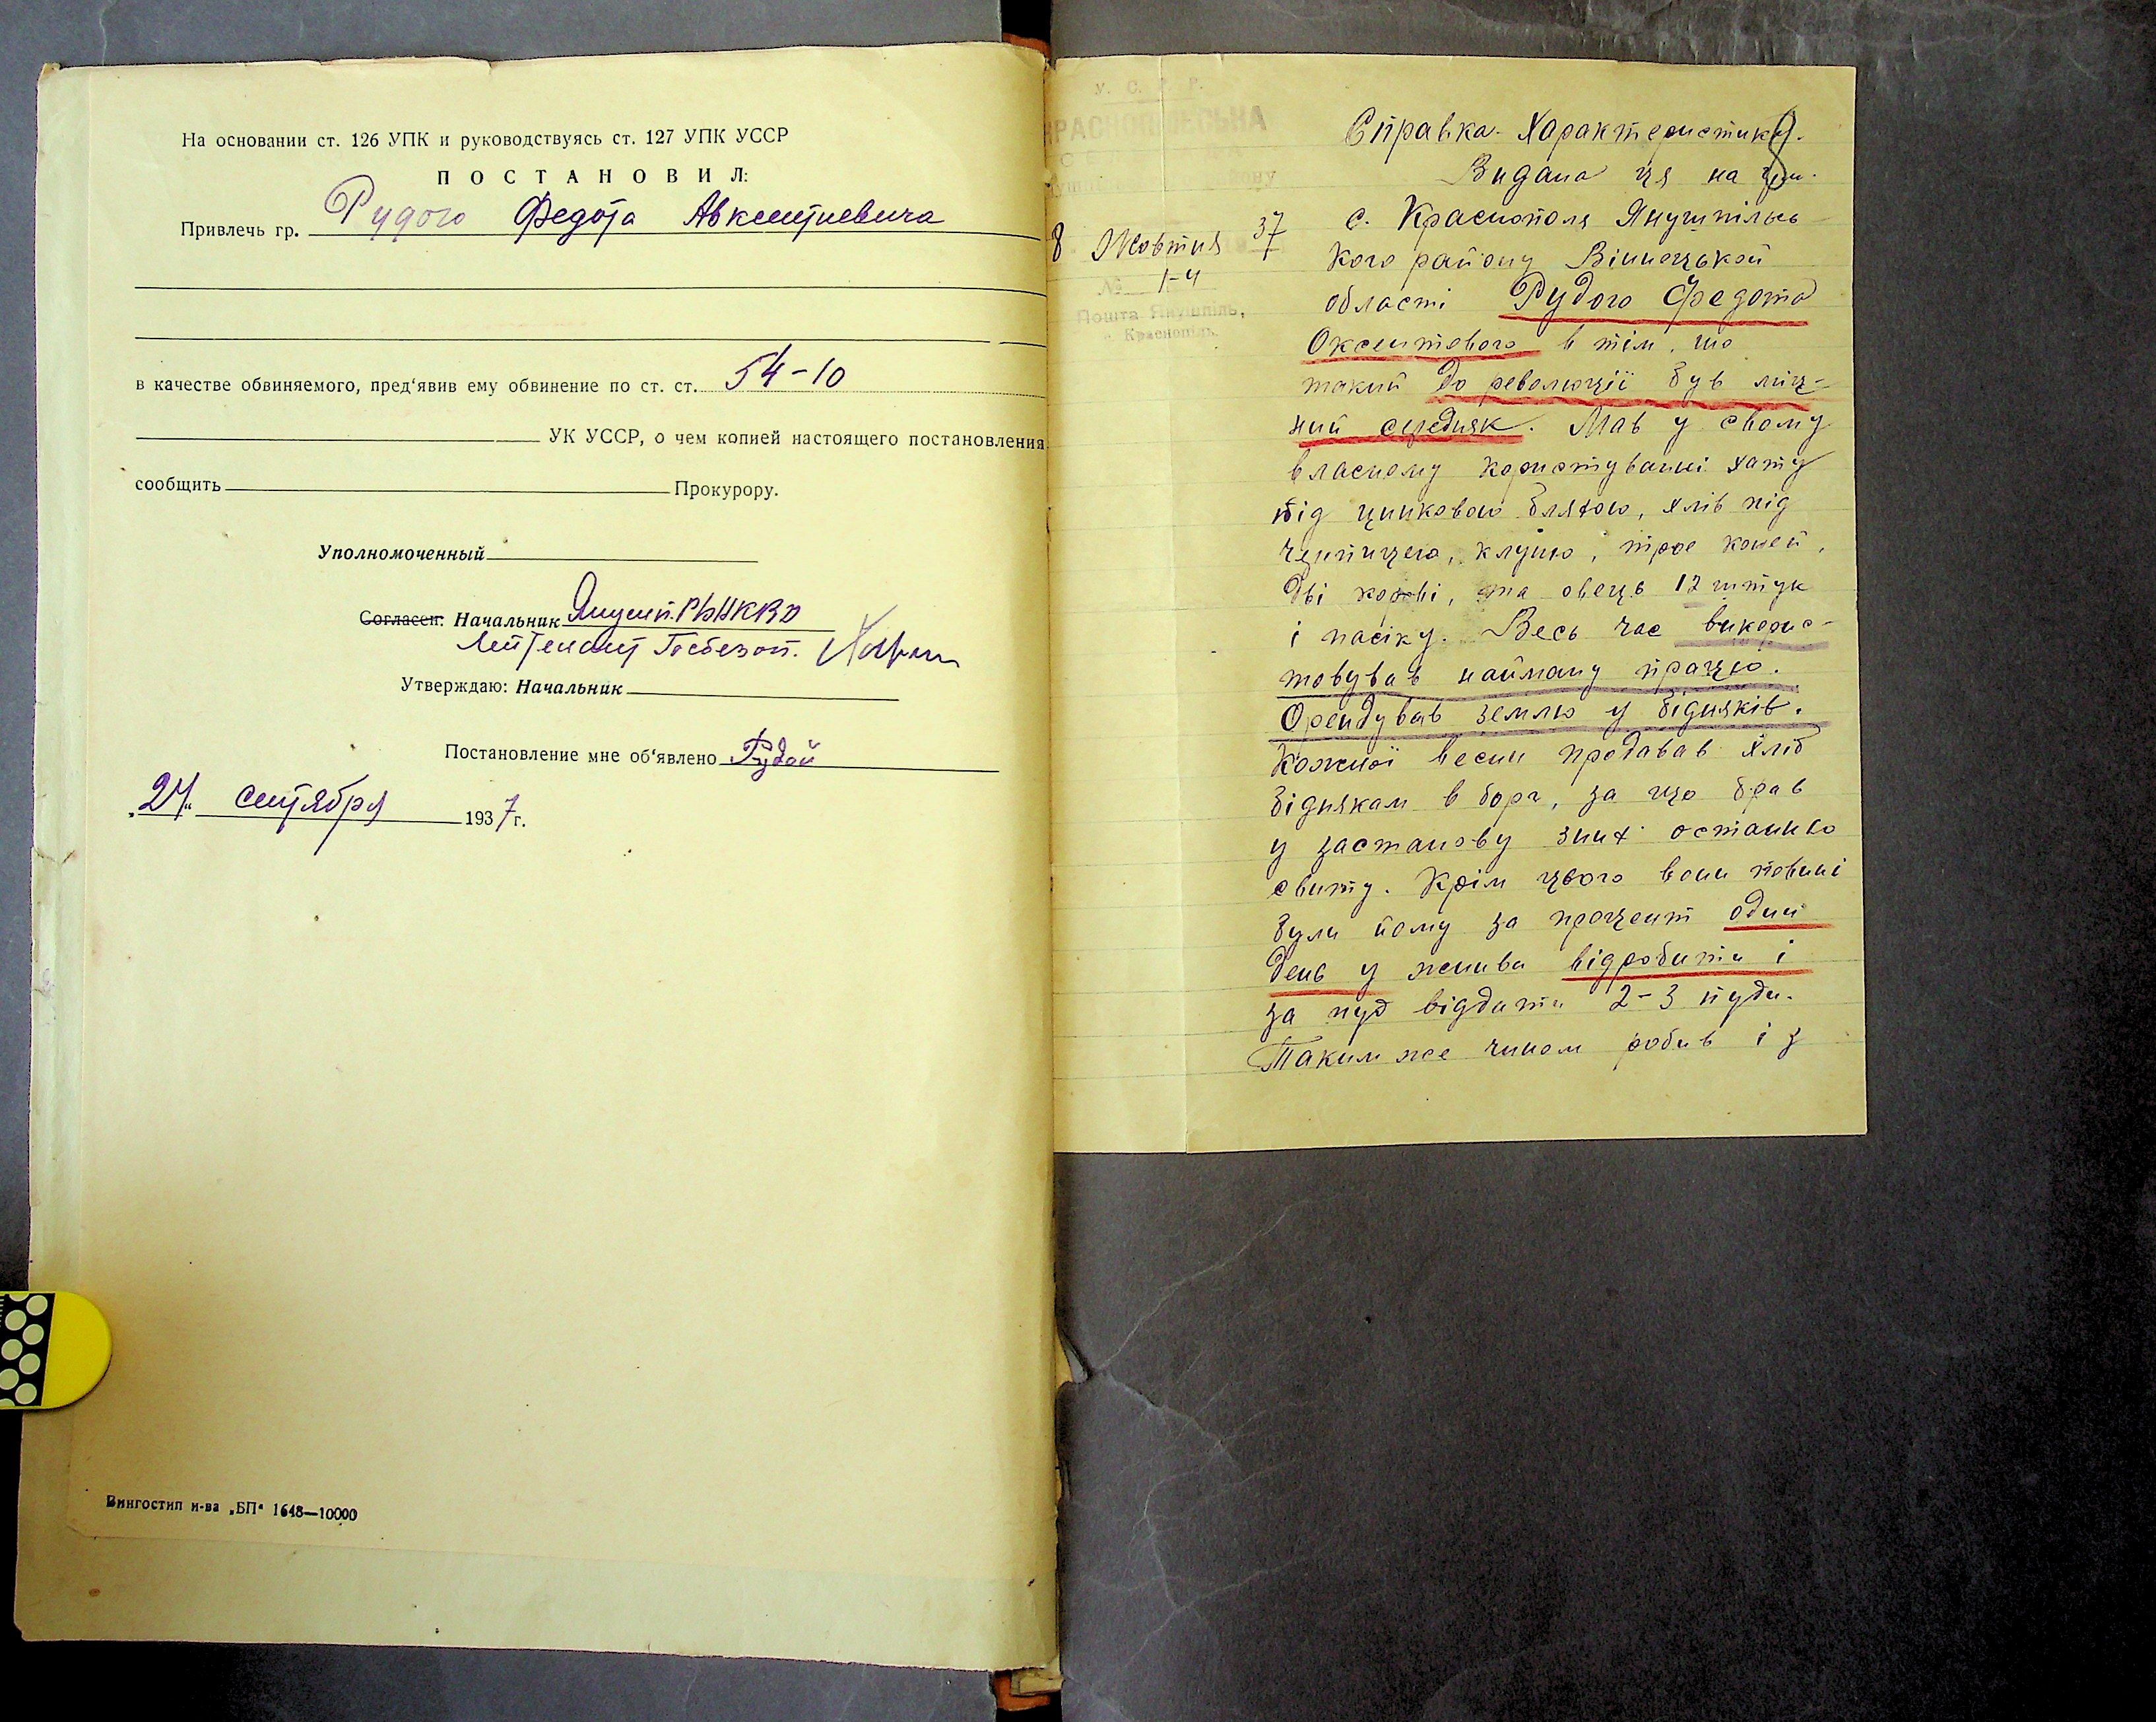 На основании ст. 126 УПК и руководствуясь ст. 127 УПК УССР
ПОСТАНОВИЛ:
Привлечь гр. Рудого Федота Авксентиевича
в качестве обвиняемого, пред'явив ему обвинение по ст. ст. 54-10
УК УССР, о чем копией настоящего постановления
сообщить Прокурору.
Уполномоченный
Согласен: Начальник Янушп. РЫНКВД
Лейтенант Госбезоп.
Утверждаю: Начальник
Постановление мне об'явлено Рудой
„24" сентября 1937 г.
Вингостип и-ва „БП" 1648—10000
У. С. Р. Р.
КРАСНОПІЛЬСЬКА
району
8 Жовтня 37
№ 1-4
Пошта Янушпіль,
с. Краснопіль.
8
Справка-Характеристика.
Видана ця на гр-н.
с. Краснополя Янушпільсь
кого району Вінницької
області Рудого Федота
Оксентового в тім, що
такий до революції був міц-
ний середняк. Мав у свому
власному користуванні хату
під цинковою бляхою, хлів під
черпицею, клуню, троє коней,
дві корові, та овець 12 штук
і пасіку. Весь час викорис-
товував найману працю.
Орендував землю у бідняків.
Кожної весни продавав хліб
біднякам в борг, за що брав
у застанову зних останню
свиту. Крім цього вони повині
були йому за процент один
день у жнива відробити і
за пуд віддати 2-3 пуди.
Таким же чином робив і з